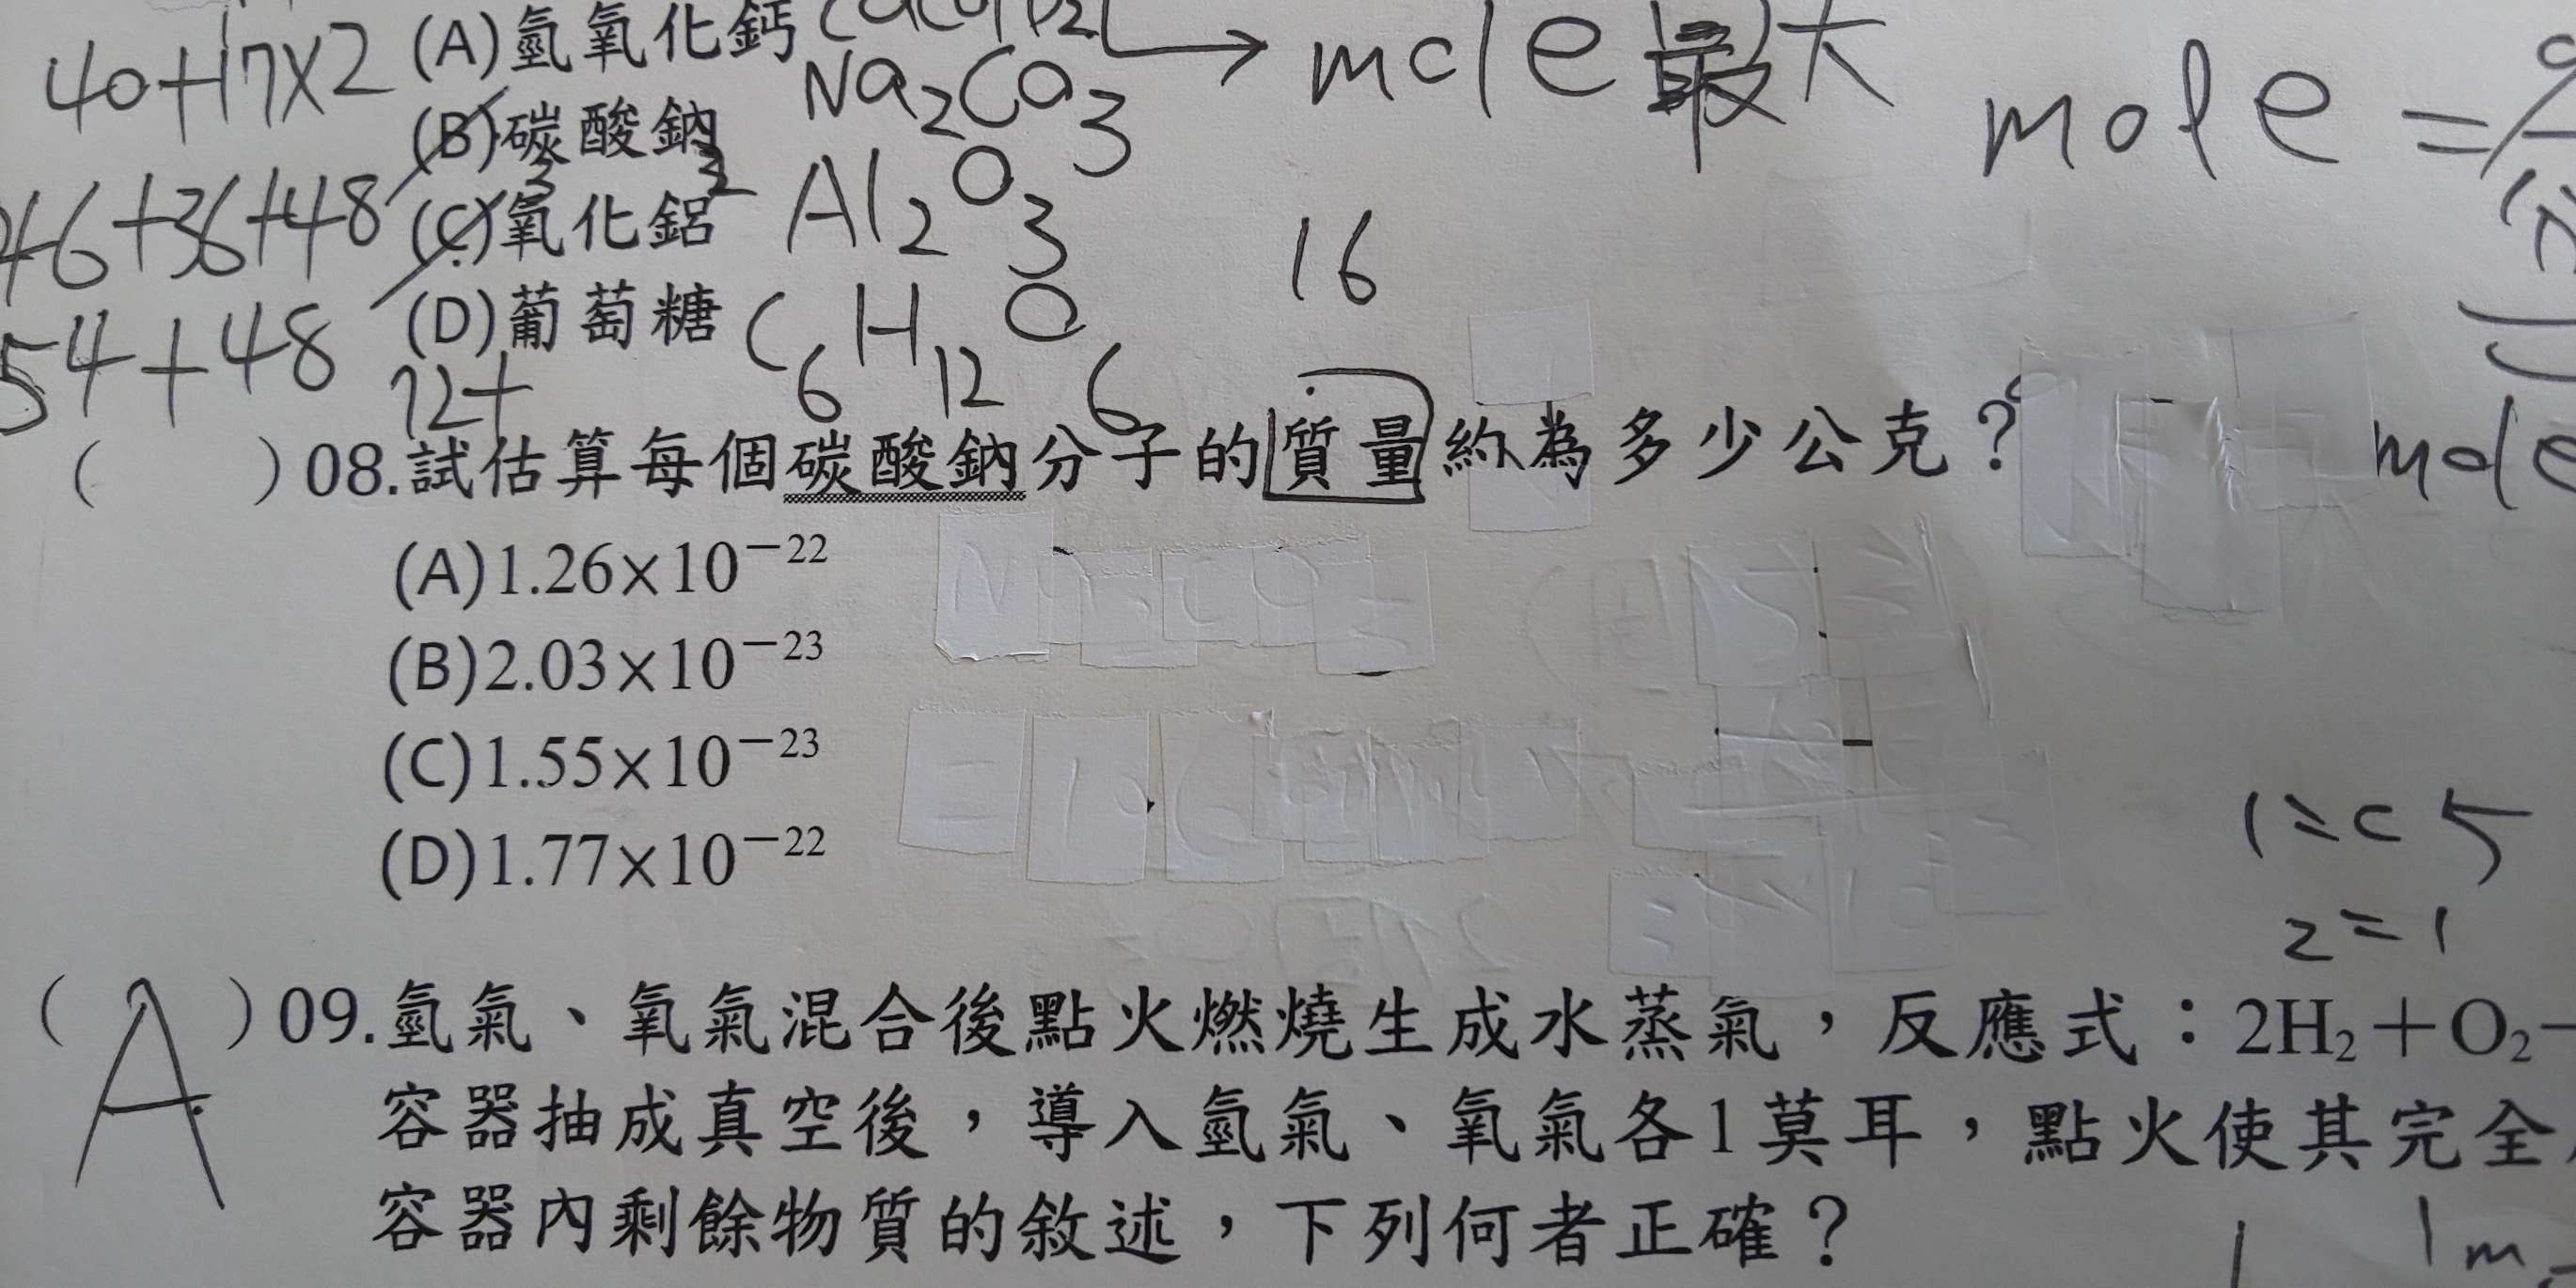 40+17×2 (A)氫氧化鈣 → mole 最大
(B)碳酸鈉 Na₂CO₃ mole =
46+36+48 (C)氧化鋁 Al₂O₃ 16
54+48 (D)葡萄糖 C₆H₁₂O₆
72+
( )08.試估算每個碳酸鈉分子的質量約為多少公克？ mole
(A)1.26×10⁻²²
(B)2.03×10⁻²³
(C)1.55×10⁻²³
(D)1.77×10⁻²²
2=1
( A )09.氫氣、氧氣混合後點火燃燒生成水蒸氣，反應式：2H₂＋O₂
容器抽成真空後，導入氫氣、氧氣各1莫耳，點火使其完全
容器內剩餘物質的敘述，下列何者正確？